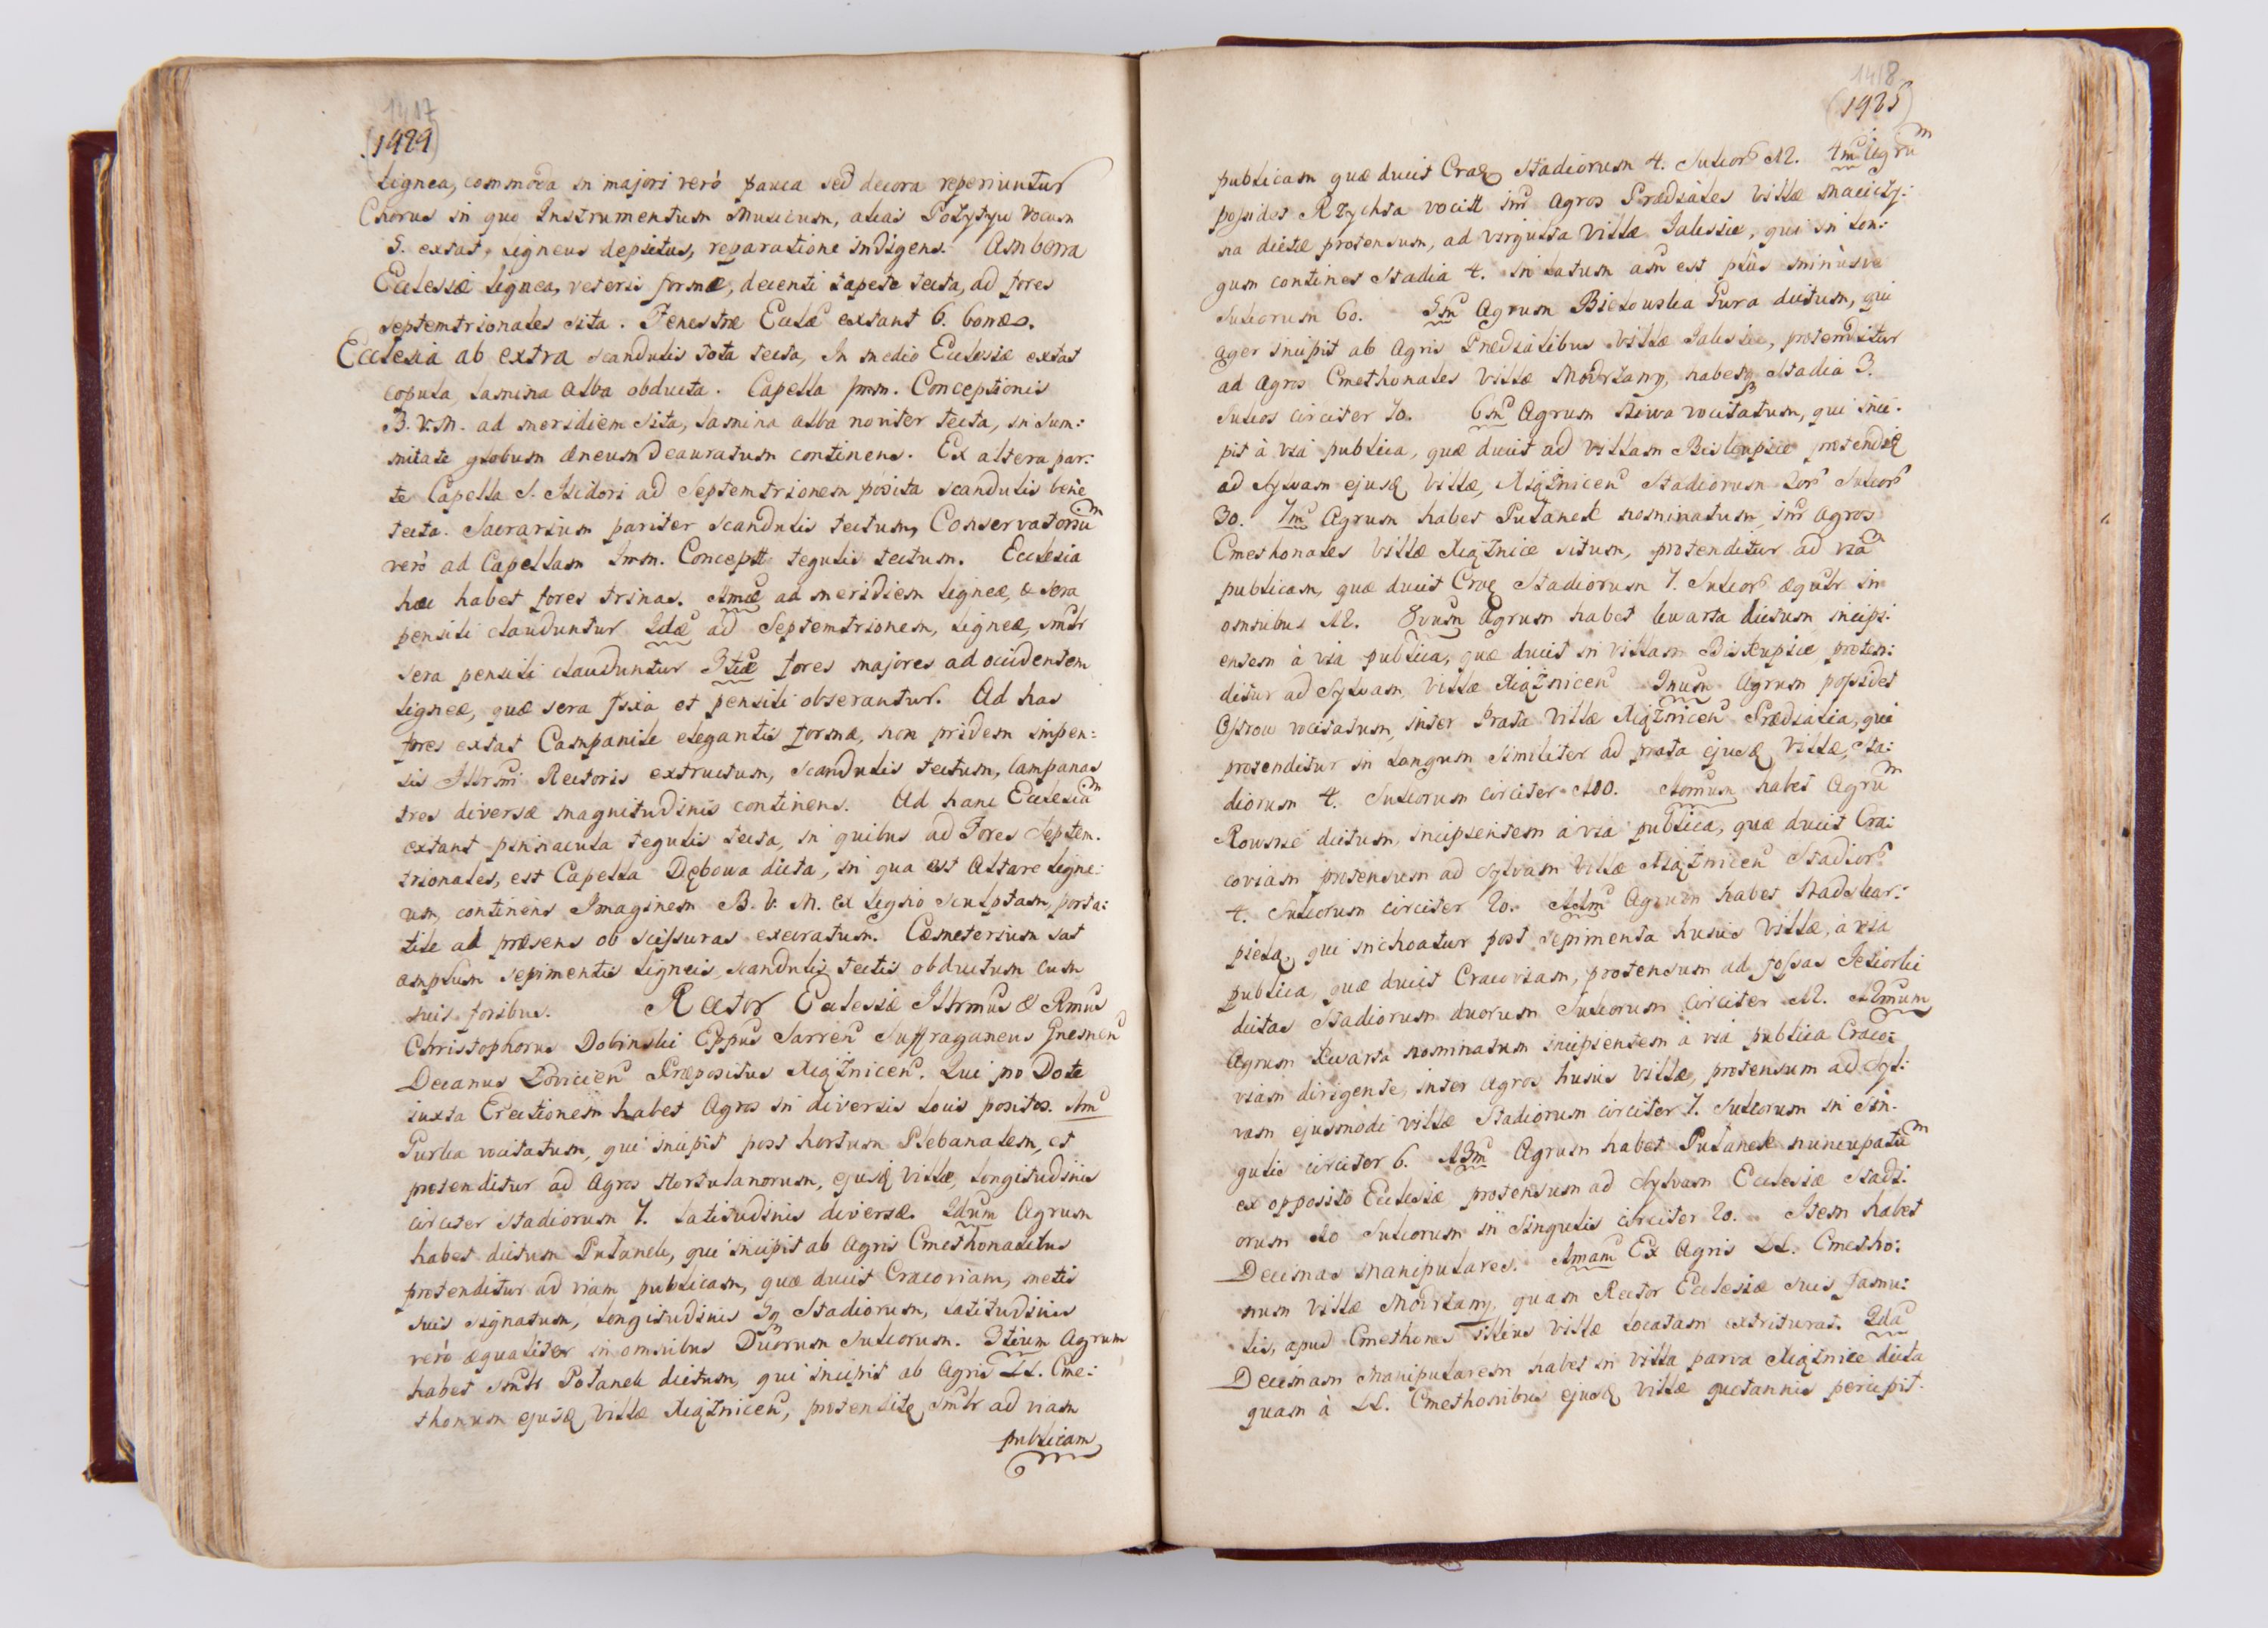 1417
(1424)
Lignea, commoda in majori veró pauca sed decora reperiuntur
Chorus in quo Instrumentum Musicum, aliàs Pozytyw vocum
5. extat, ligneus depictus, reparatione indigens. Ambona
Ecclesiæ lignea, veteris formæ, decenti tapete tecta, ad fores
septemtrionales sita. Fenestræ Eccłæ extant 6. bonæ.
Ecclesia ab extra scandulis tota tecta, In medio Ecclesiæ extat
copula, lamina alba obducta. Capella Imm. Conceptionis
B. V. M. ad meridiem sita, lamina alba noviter tecta, in sum:
mitate globum æneum deauratum continens. Ex altera par:
te Capella S. Isidori ad Septemtrionem posita scandulis bene
tecta. Sacrarium pariter scandulis tectum, Conservatoriũ
veró ad Capellam Imm. Concept. tegulis tectum. Ecclesia
hæc habet fores trinas. 1mæ ad meridiem ligneæ, & sera
pensili clauduntur 2dæ ad Septemtrionem, ligneæ, smlr
sera pensili clauduntur 3tiæ fores majores ad occidentem
ligneæ, quæ sera fixa et pensili obserantur. Ad has
fores extat Campanile elegantis formæ, non pridem impen:
sis Illrmi Rectoris extructum, scandulis tectum, campanas
tres diversæ magnitudinis continens. Ad hanc Ecclesiam
extant pinnacula tegulis tecta, in quibus ad Fores Septem.
trionales, est Capella Dębowa dicta, in qua est Altare ligne:
um, continens Imaginem B. V. M. ex ligno sculptam, porta:
tile ad præsens ob scissuras execratum. Cæmeterium sat
amplum sepimentis ligneis, scandulis tectis obductum cum
suis foribus. Rector Ecclesiæ Illrmus & Rmus
Christophorus Dobinski Eppus Sarren Suffraganeus Gnesnen
Decanus Łovicien Præpositus Xiążnicen. Qui pro Dote
iuxta Erectionem habet Agros in diversis locis positos. 1m
Gurka vocitatum, qui incipit post hortum Plebanalem, et
protenditur ad Agros Hortulanorum, ejusq villæ, longitudinis
circiter stadiorum 7. latitudinis diversæ. 2dum Agrum
habet dictum Putanek, qui incipit ab Agris Cmethonalibus
protenditur ad viam publicam, quæ ducit Cracoviam, metis
suis signatum, longitudinis 3 Stadiorum, latitudinis
veró æqualiter in omnibus Duorum sulcorum. 3tium Agrum
habet smlr Potanek dictum, qui incipit ab Agris LL. Cme:
thonum ejusq villæ Xiążnicen, protensitq smlr ad viam
publicam
1418
(1425)
publicam quæ ducit Crac Stadiorum 4. Sulcor 12. 4m Agrũ
possidet Rzychta vocitt int Agros Prædiales villæ Maciczy:
na dictæ protensum, ad virgulta villæ Zalissie, qui in lon:
gum continet Stadia 4. in latum autem est plùs minùsve
sulcorum 60. 5m Agrum Bielowska Gura dictum, qui
ager incipit ab Agris Prædialibus villæ Zalissie, protenditur
ad Agros Cmethonales villæ Modrzany, habetq Stadia 3.
Sulcos circiter 70. 6m Agrum Niwa vocitatum, qui inci:
pit à via publica, quæ ducit ad villam Biskupice protendiq
ad Sylvam ejusq villæ, Xiążnicen Stadiorum 2or Sulcor
30. 7m Agrum habet Putanek nominatum, int Agros
Cmethonales villæ Xiążnice situm, protenditur ad viã
publicam, quæ ducit Crac Stadiorum 7. Sulcor æqualr in
omnibus 12. 8vum Agrum habet kwarta dictum incipi:
entem à via publica, quæ ducit in villam Biskupice, proten:
ditur ad Sylvam, villæ Xiążnicen. 9num Agrum possidet
Ostrow vocitatum, inter Prata villæ Xiążnicen Prædialia, qui
protenditur in longum similiter ad prata ejusq villæ, Sta:
diorum 4. Sulcorum circiter 100. 10mum habet Agrũ
Rownie dictum, incipientem à via publica, quæ ducit Cra:
coviam protensum ad Sylvam villæ Xiążnicen Stadior
4. Sulcorum circiter 20. 11m Agrum habet Nadskar:
pielą, qui inchoatur post sepimenta hujus villæ, à via
publica, quæ ducit Cracoviam, protensum ad fossas Jeziorki
dictas Stadiorum duorum Sulcorum circiter 12. 12mum
Agrum kwarta nominatum incipientem à via publica Craco:
viam dirigente, inter Agros hujus villæ, protensum ad Syl:
vam ejusmodi villæ Stadiorum circiter 7. sulcorum in sin:
gulis circiter 6. 13m Agrum habet Putanek nuncupatũ
ex opposito Ecclesiæ protensum ad Sylvam Ecclesiæ Stadi:
orum 10 Sulcorum in Singulis circiter 20. Item habet
Decimas manipulares. 1mam Ex Agris LL. Cmetho:
num villæ Modrzany, quam Rector Ecclesiæ suis famu:
lis, apud Cmethones illius villæ locatam extriturat. 2da
Decimam Manipularem habet in villa parva Xiążnice dicta
quam à LL. Cmethonibus ejusq villæ quotannis percipit.